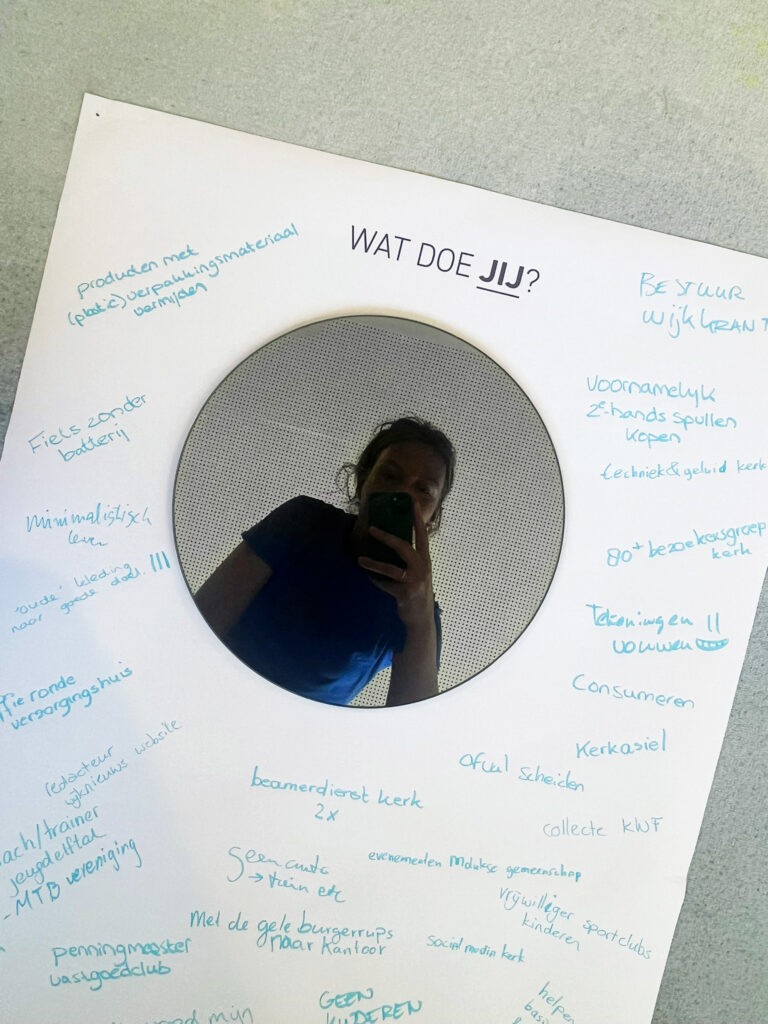 WAT DOE JIJ?
producten met
(plastic) verpakkingsmateriaal
vermijden
BESTUUR
WIJKKRANT
Voornamelijk
2e-hands spullen
kopen
Fiets zonder
batterij
techniek & geluid kerk
Minimalistisch
leven
80+ bezoekersgroep
kerk
'oude' kleding
naar goede doel. |||
Tekeningen ||
vouwen
Consumeren
ronde
verzorgingshuis
Kerkasiel
afval scheiden
redacteur
wijknieuws website
beamerdienst kerk
2x
collecte KWF
coach/trainer
jeugdelftal
- MTB vereniging
Geen auto
→ trein etc
evenementen Molukse gemeenschap
vrijwilliger sportclubs
kinderen
Met de gele burgerrups
naar kantoor
social media kerk
penningmeester
vastgoedclub
GEEN
KINDEREN
helpen
mijn